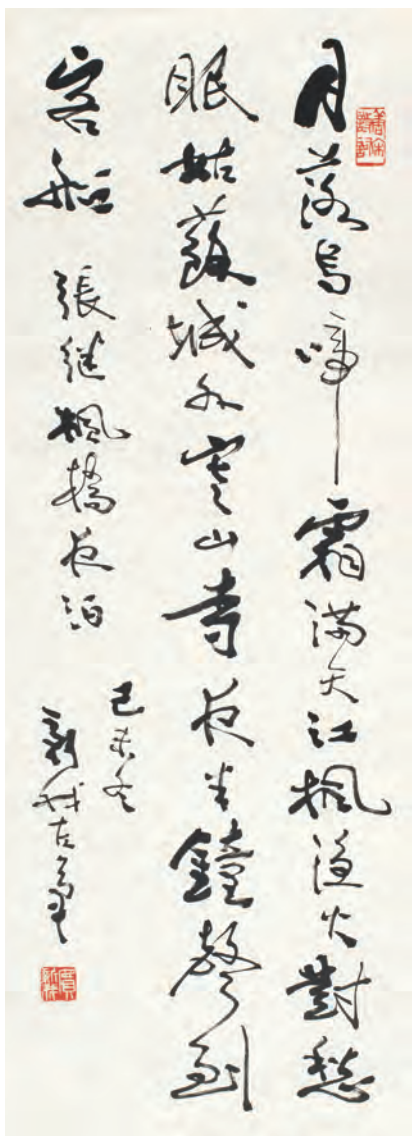 月落烏啼霜滿天江楓漁火對愁
眠姑蘇城外寒山寺夜半鐘聲到
客船 張継楓橋夜泊
己未冬
新我左筆